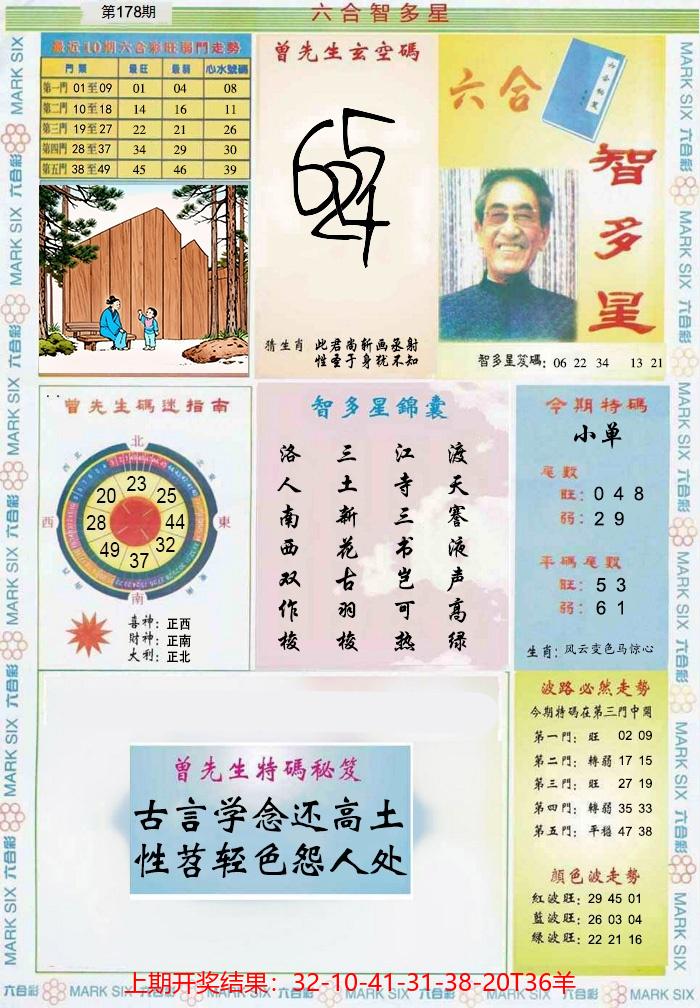 第178期
六合智多星
最近10期六合彩旺弱門走勢
門類 最旺 最弱 心水號碼
第一門 01至09 01 04 08
第二門 10至18 14 16 11
第三門 19至27 22 21 26
第四門 28至37 34 29 30
第五門 38至49 45 46 39
曾先生玄空碼
猜生肖 此君尚新画丞射
性圣于身犹不知
六合
六合秘笈
智多星
智多星笈碼: 06 22 34 13 21
曾先生碼迷指南
北
西
東
南
23
20 25
28 44
49 32
37
喜神: 正西
财神: 正南
大利: 正北
智多星錦囊
渡天謇液声高绿
江寺三书岂可热
三土新花古羽梭
洛人南西双作梭
今期特碼
小单
尾數
旺: 0 4 8
弱: 2 9
平碼尾數
旺: 5 3
弱: 6 1
生肖: 风云变色马惊心
曾先生特碼秘笈
古言学念还高土
性苕轻色怨人处
波路必然走勢
今期特碼在第三門中開
第一門: 旺 02 09
第二門: 轉弱 17 15
第三門: 旺 27 19
第四門: 轉弱 35 33
第五門: 平穩 47 38
顏色波走勢
紅波旺: 29 45 01
藍波旺: 26 03 04
綠波旺: 22 21 16
上期开奖结果：32-10-41-31-38-20T36羊
MARK SIX 六合彩